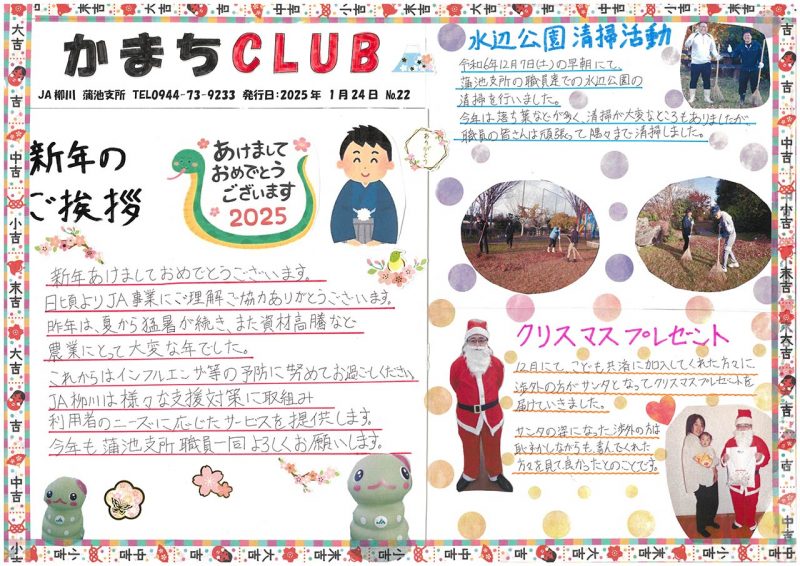 かまちCLUB
JA柳川 蒲池支所 TEL0944-73-9233 発行日:2025年 1月24日 No.22
新年の
ご挨拶
あけまして
おめでとう
ございます
2025
新年あけましておめでとうございます。
日頃よりJA事業にご理解ご協力ありがとうございます。
昨年は、夏から猛暑が続き、また資材高騰など
農業にとって大変な年でした。
これからはインフルエンザ等の予防に努めてお過ごしください
JA柳川は様々な支援対策に取組み
利用者のニーズに応じたサービスを提供します。
今年も蒲池支所職員一同よろしくお願いします。
水辺公園清掃活動
令和6年12月7日(土)の早朝にて、
蒲池支所の職員達での水辺公園の
清掃を行いました。
今年は落ち葉などが多く、清掃が大変なところもありましたが、
職員の皆さんは頑張って隅々まで清掃しました。
クリスマスプレゼント
12月にて、こども共済に加入してくれた方々に、
渉外の方がサンタとなってクリスマスプレゼントを
届けていきました。
サンタの姿になった渉外の方は
恥ずかしながらも、喜んでくれた
方々を見て良かったとのことです。
大吉 吉 中吉 小吉 末吉 大吉 吉 中吉